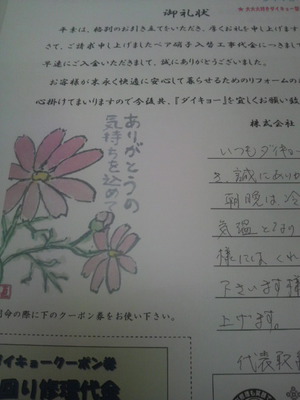 御礼状
平素は、格別のお引き立てをいただき、厚くお礼を申し上げます
さて、ご請求申し上げましたペア硝子入替工事代金につきまし
早速にご入金いただきまして、誠にありがとうございました。
お客様が末永く快適に安心して暮らせるためのリフォームの
心掛けてまいりますので今後共、『ダイキョー』を宜しくお願い
株式会社
ありがとうの
気持ちを込めて
いつもダイキョー
き誠にあり
朝晩は冷
気温となり
様にはくれ
下さいます様
上げます。
代表取
用命の際に下のクーポン券をお使い下さい。
イキョークーポン券
回り修理代金